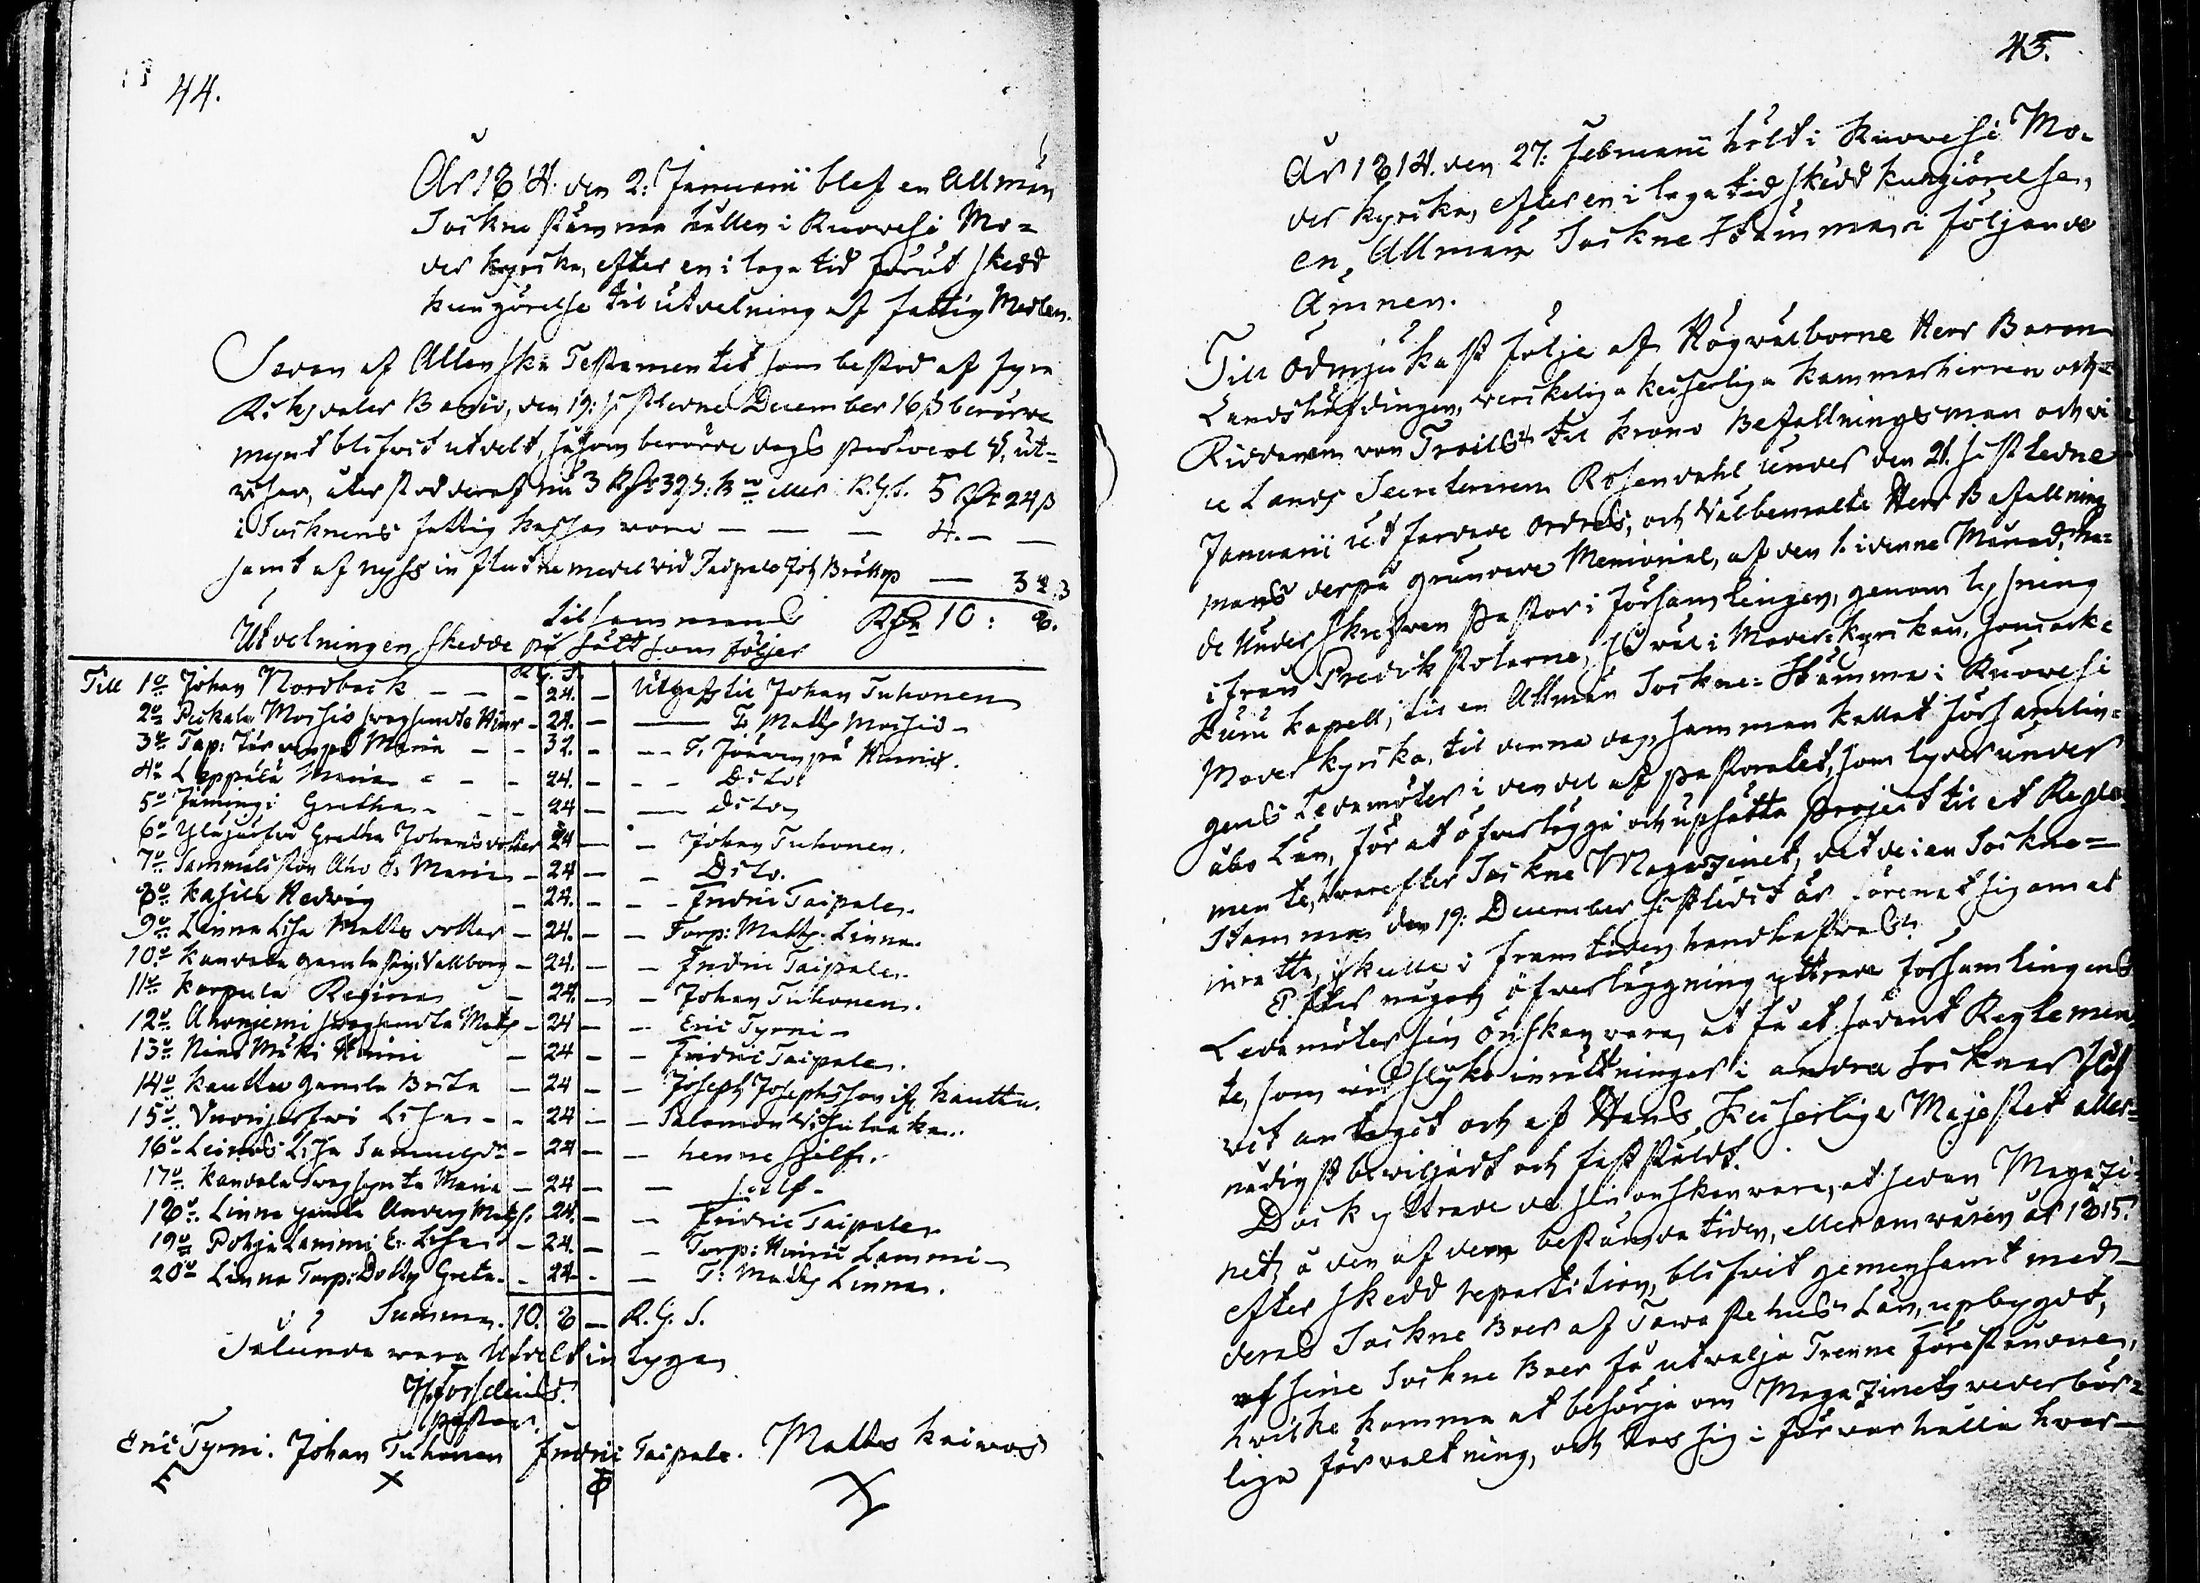 44.
År 1814. den 2: Januarii blef en Allmän
Sockne stämma hållen i Ruovesi Mo-
der kyrcka, efter en i laga tid förut skedd
kungörelse til utdelning af fattig Medlen.
Sedan af Allenska Testamentet som bestod af fyra
Riksdaler Banco, den 19: sistledne December 16 ß berörde
mynt blifvit utdelt, såsom berörde dags protocol ut-
viser, återstod deraf nu 3 Rdr 32 ß: B:co eller R.G.S. 5 Rdr 24 ß
i Socknens fattig kassa voro — — — 4. — —
samt af nyss in flutne medel vid Taipale Joh Bröllop — 32 ß
tilsammans Rdr 10: 8.
Utdelningen skedde på sätt som följer
R.G.S.
Till 1o Johan Nordback — — 24. — Utgafs til Johan Tuhonen
2o Pekkala Moisio swagsinta Hinr — 24. — — T. Matts Moisio —
3o Tap: Järvenpä Maria — — 32. — — T. Järvenpä Hinric.
4o Leppälä Maria — — 24. — — Dito
5o Jämingi Gretha — — 24 — — Dito
6o Yläjärfvi Gretha Johans dotter 24 — — Johan Tuhonen.
7o Sammaliston Aho E: Maria — 24 — — Dito.
8o Kasila Hedvig — 24. — — Fredric Taipale.
9o Linna Lisa Matts dotter — 24. — — Torp: Matts Linna.
10o Kandala gamla pig: Vallborg — 24. — — Fredric Taipale.
11o Karpula Regina — 24. — — Johan Tuhonen.
12o Ahonjemi swagsinta Matts — 24 — — Eric Tyrni —
13o Nieu Mäki Hinric — 24 — — Fredric Taipale.
14o Kauttu gamla Brita — 24 — — Joseph Josephsson if. Kauttu.
15o Vuorijerfwi Lisa — — 24 — — Salomon
16o Leinos Lisa Samuelsdr — 24 — — henne sielf.
17o Kandala Swagsynta Maria — 24 — — sielf —
18o Linna gamla Anders Matts. 24. — — Fredric Taipale
19o Pohja Lammi E. Lisa — 24. — — Torp: Hinric Lammi —
20o Linna Torp: Dottr Greta — 24 — — T: Matts Linna.
Summa. 10. 8 — R.G.S.
Salunda vara Utdelt intyga
H. Forselius.
Pastor.
Eric Tyrni. Johan Tuhonen Fredric Taipale. Mattes Kaivos
45.
År 1814. den 27: Februarii hölt i Ruovesi Mo-
der kyrcka, efter en i laga tid skedd kungiörelse,
en Allmän Sockne Stämma, i följande
Ämnen.
Till ödmjukast följe af Högvälborne Herr Baron
Landshöfdingen, verckeliga keiserliga kammarherren och
Riddaren von Troils til Krono Befallningsman och vi-
ce Lands Secreteraren Rosendahl under den 21. sistledne
Januarii utfärdade ordres, och Välbemälte Herr Befallning
mans derpå grundade Memorial, af den 1. i denne Månad, ha-
de Underskrefven Pastor i församlingen, genom lysning
ifrån Predikstolarne, så väl i Moderkyrckan, som ock i
Kuru kapell, til en Allmän Sockne-Stämma i Ruovesi
Moderkyrcka, til denna dag, samman kallat församlin-
gens Ledamöter i den del af Pastoratet, som lyder under
åbo Län, för at öfverlägga och upsätta project til et Regle-
mente, hvarefter Sockne Magazinet, det de i en Sockne-
Stämma den 19: December sistledit år förenat sig om at
inrätta, skulle i framtiden handhafvas.
Efter någon öfverläggning yttrade församlingens
Ledamöter sin önskan vara, at få et sådant Reglemen
te, som vid slyka inrättningar i andra Socknar blif
vit antagit och af Hans Keiserliga Majestet aller-
nådigst bevi̇ljadt och faststäldt.
Dock yttrade de sin önskan vara, at sedan Magazi-
net, å den af dem bestämda tiden, eller om våren år 1815.
efter skedd repartition, blifvit gemensamt med
deras Sockne Boer af Tavastehus Län, upbygdt,
af sine Sockne Boer få utvälja Trenne Föreståndare,
hvilke komma at besörja om Magazinets vederbör-
liga förvaltning, och dos sig i förvar hålla hvar-